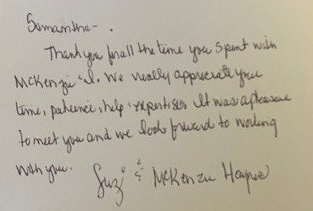 Samantha-
Thank you for all the time you spent with
McKenzie & I. We really appreciate your
time, patience, help & expertise. It was a pleasure
to meet you and we look forward to working
with you.
Suzi & McKenzie Haynie